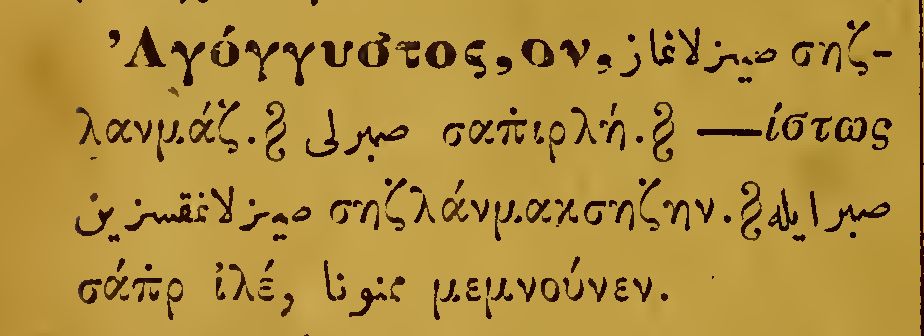 Ἀγόγγυστος, ον, صيزلانماز σηζ-
λανμάζ.§ صبرلى σαπ̇ιρλή.§ —ίστως
صيزلانمقسزين σηζλάνμακσηζην.§ صبر ايله
σάπ̇ρ ἰλέ, ممنونا μεμνούνεν.